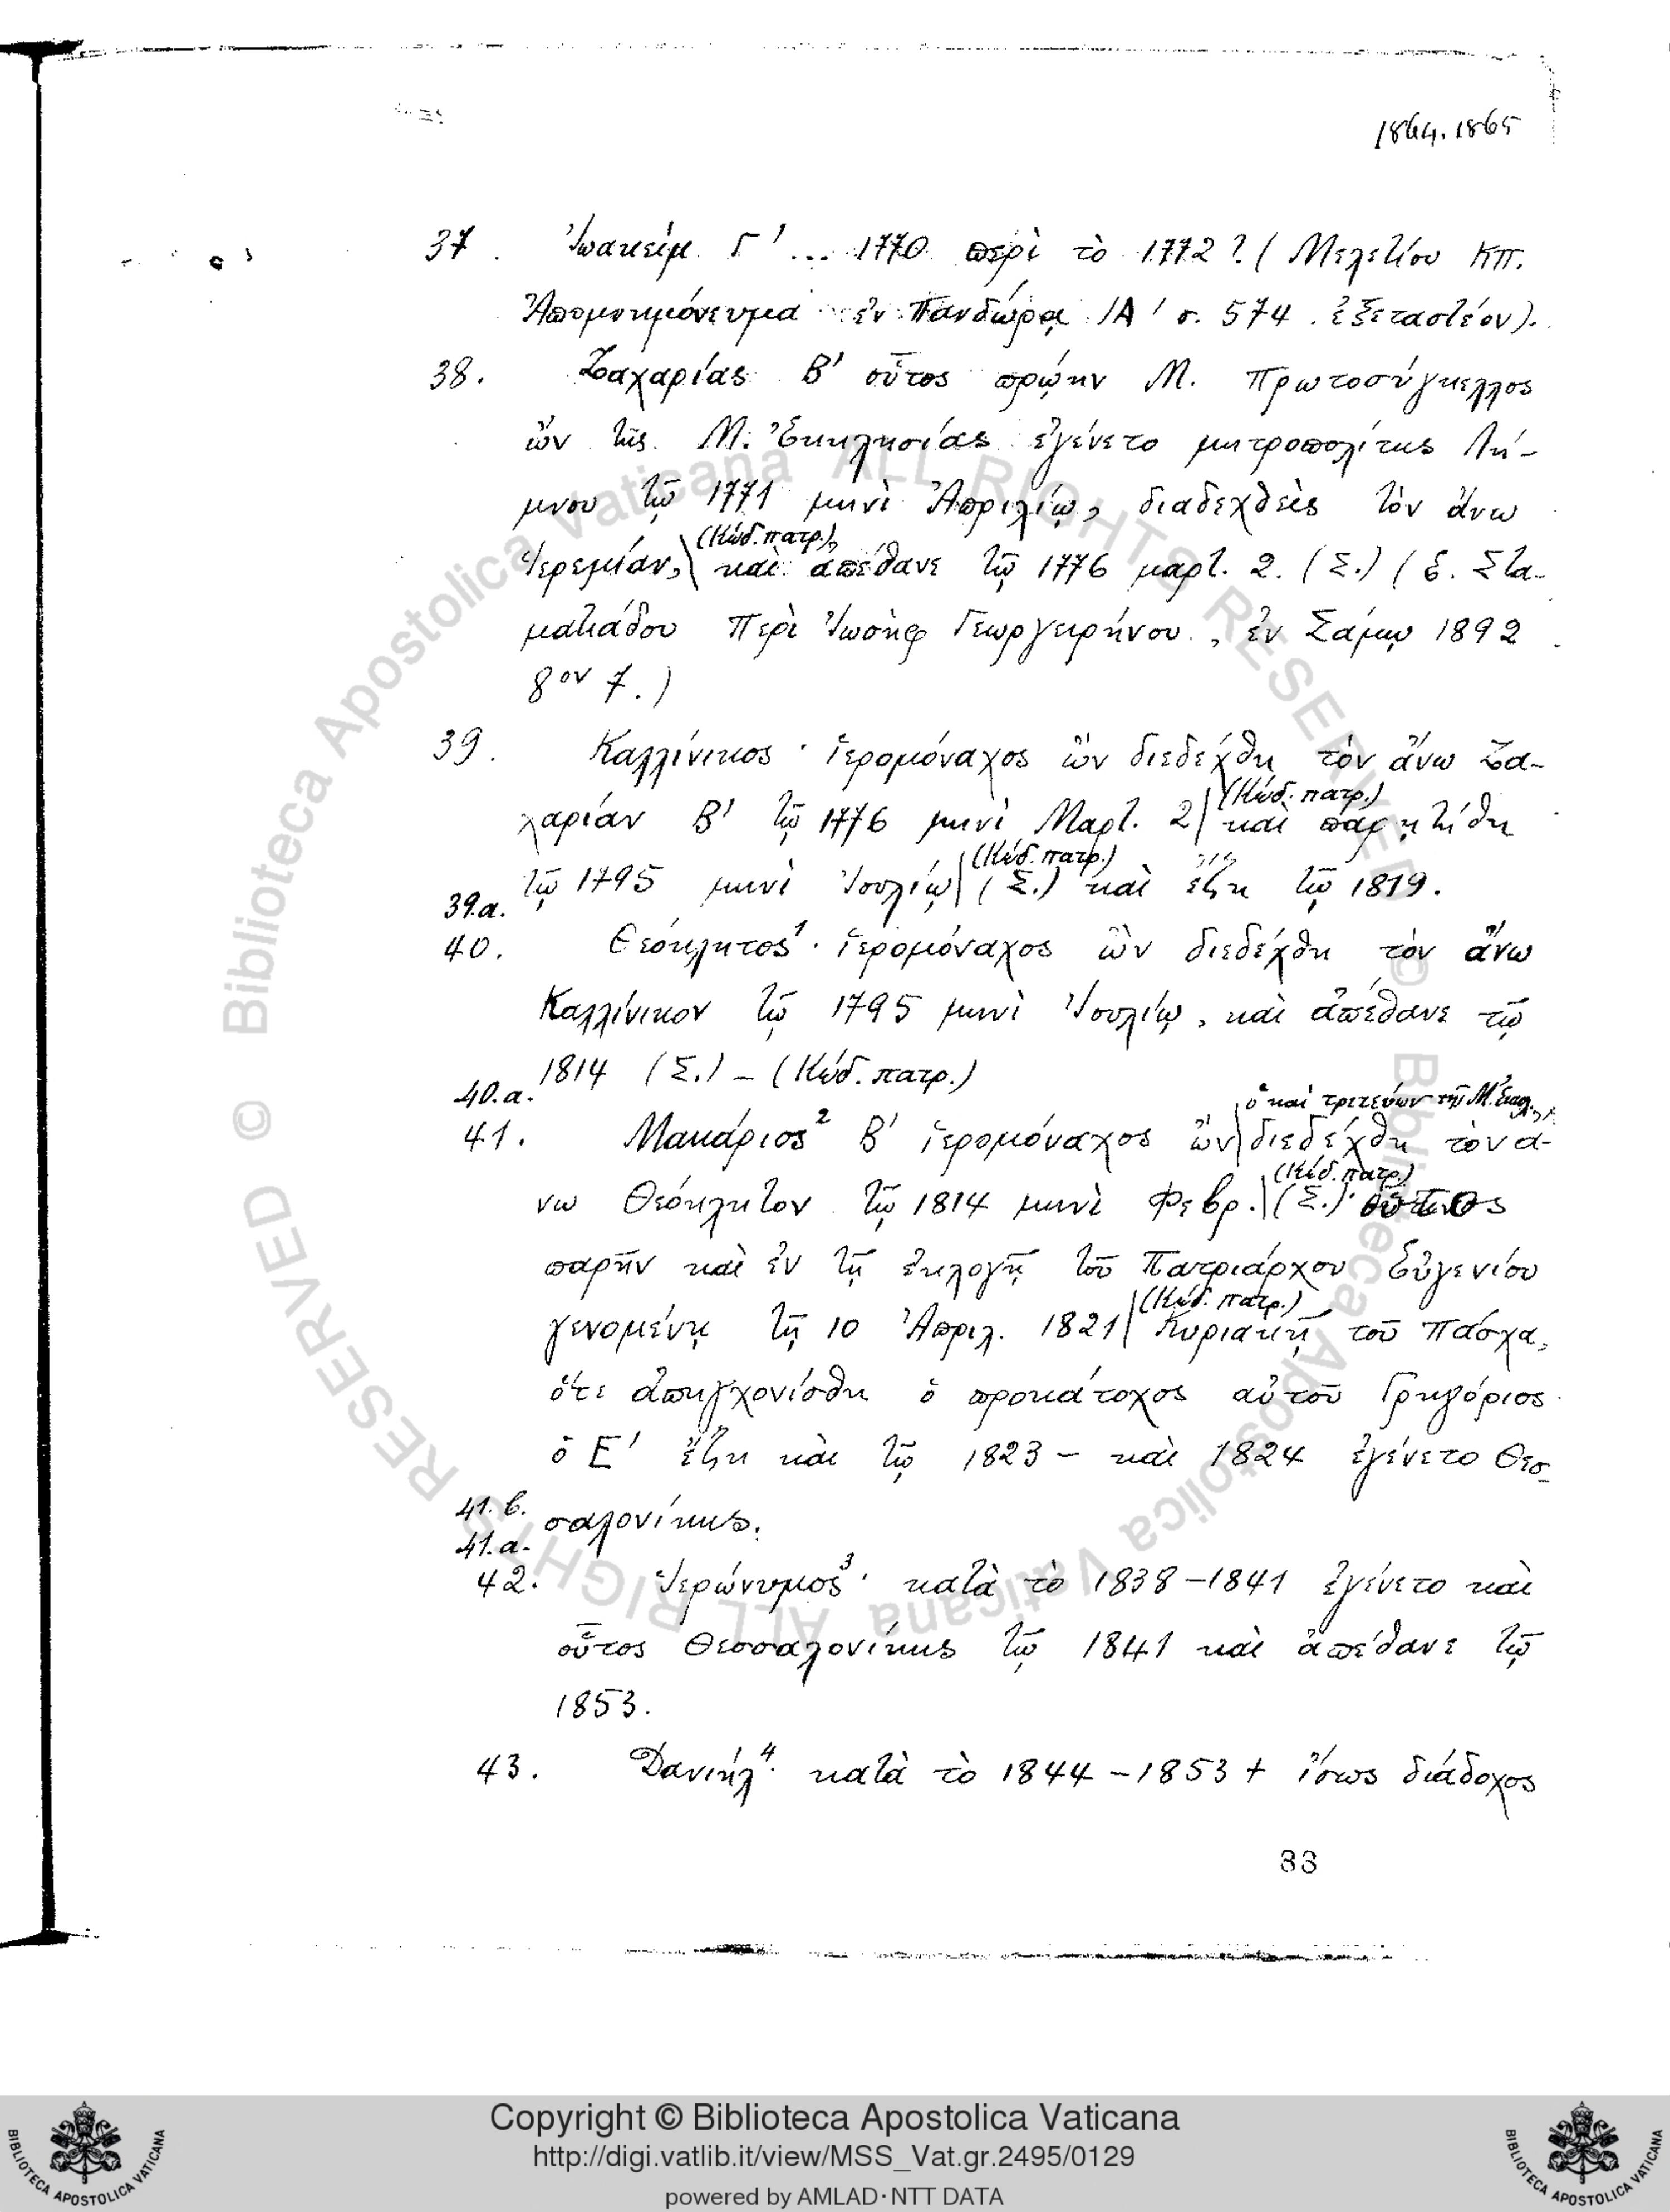 1864, 1865
37. Ἰωακεὶμ Γ' ... 1770 περὶ τὸ 1772? (Μελετίου Κπ.
Ἀπομνημόνευμα ἐν Πανδώρᾳ ΙΑ' σ. 574. ἐξεταστέον).
38. Ζαχαρίας Β' οὗτος πρώην Μ. Πρωτοσύγκελλος
ὢν τῆς Μ. Ἐκκλησίας ἐγένετο μητροπολίτης Λή-
μνου τῷ 1771 μηνὶ Ἀπριλίῳ, διαδεχθεὶς τὸν ἄνω
(Κώδ. πατρ.),
Ἱερεμίαν, καὶ ἀπέθανε τῷ 1776 μαρτ. 2. (Σ.) (ϐ. Στα-
ματιάδου Περὶ Ἰωσὴφ Γεωργειρήνου, ἐν Σάμῳ 1892
8ον 7.)
39. Καλλίνικος · ἱερομόναχος ὢν διεδέχθη τὸν ἄνω Ζα-
(Κώδ. πατρ.)
χαρίαν Β' τῷ 1776 μηνὶ Μαρτ. 2 καὶ παρῃτήθη
(Κώδ. πατρ.)
τῷ 1795 μηνὶ Ἰουλίῳ (Σ.) καὶ ἔζη τῷ 1819.
39.α.
40. Θεόκλητος¹ · ἱερομόναχος ὢν διεδέχθη τὸν ἄνω
Καλλίνικον τῷ 1795 μηνὶ Ἰουλίῳ, καὶ ἀπέθανε τῷ
1814 (Σ.) – (Κώδ. πατρ.)
40.α.
ὁ καὶ τριτεύων τῆς Μ. Ἐκκλ.,
41. Μακάριος² Β' ἱερομόναχος ὢν διεδέχθη τὸν ἄ-
(Κώδ. πατρ.)
νω Θεόκλητον τῷ 1814 μηνὶ Φεβρ. (Σ.)· οὗτος
παρῆν καὶ ἐν τῇ ἐκλογῇ τοῦ Πατριάρχου Εὐγενίου
(Κώδ. πατρ.)
γενομένῃ τῇ 10 Ἀπριλ. 1821 Κυριακῇ τοῦ Πάσχα,
ὅτε ἀπηγχονίσθη ὁ προκάτοχος αὐτοῦ Γρηγόριος
ὁ Ε' ἔζη καὶ τῷ 1823 – καὶ 1824 ἐγένετο Θεσ-
41. ϐ. σαλονίκης.
41.α.
42. Ἱερώνυμος³ · κατὰ τὸ 1838–1841 ἐγένετο καὶ
οὗτος Θεσσαλονίκης τῷ 1841 καὶ ἀπέθανε τῷ
1853.
43. Δανιήλ⁴· κατὰ τὸ 1844–1853 + ἴσως διάδοχος
33
© Biblioteca Apostolica Vaticana ALL RIGHTS RESERVED
© Biblioteca Apostolica Vaticana ALL RIGHTS RESERVED
Copyright © Biblioteca Apostolica Vaticana
http://digi.vatlib.it/view/MSS_Vat.gr.2495/0129
powered by AMLAD·NTT DATA
BIBLIOTECA APOSTOLICA VATICANA
BIBLIOTECA APOSTOLICA VATICANA